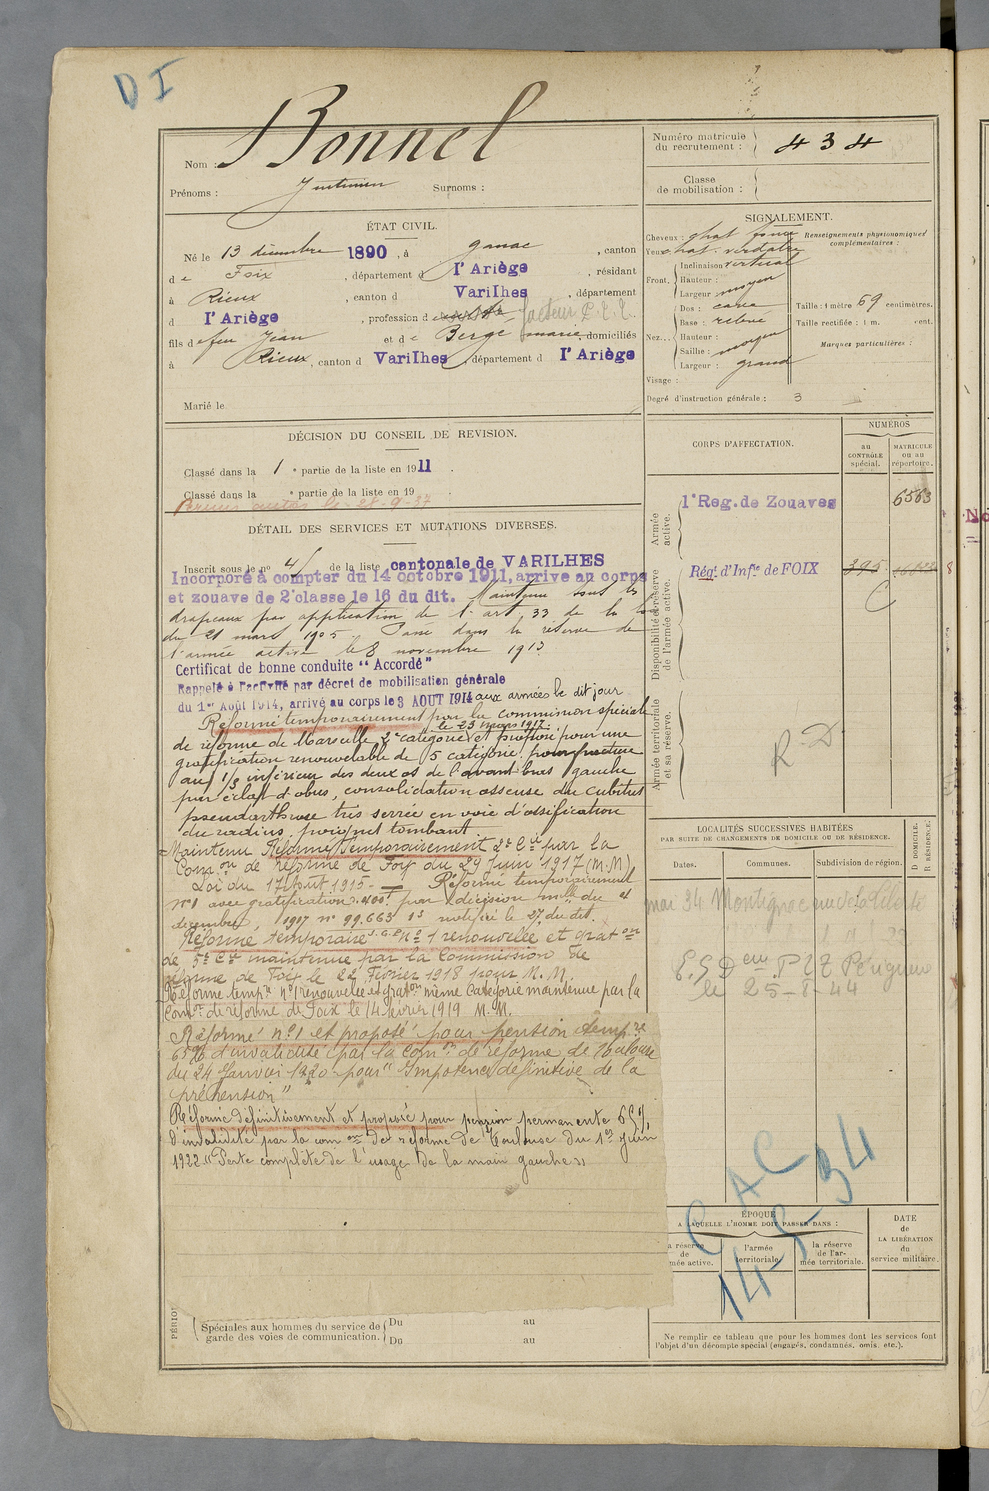 D I
Nom : Bonnel
Prénoms : Surnoms :
Numéro matricule
du recrutement : 434
Classe
de mobilisation :
ÉTAT CIVIL.
Né le 13 décembre 1890, à ganac, canton
de Foix, département d l'Ariège, résidant
à Rieux, canton d Varilhes, département
d l'Ariège, profession d facteur P.T.T.
fils de feu Jean et de Berge marie, domiciliés
à Rieux, canton d Varilhes, département d l'Ariège
Marié le
SIGNALEMENT.
Cheveux : chat. foncé
Yeux chat. verdatre
Renseignements physionomiques
complémentaires :
Front. Inclinaison vertical
Hauteur : moyen
Largeur
Nez... Dos : cave
Base : relevé
Hauteur : moyen
Saillie :
Largeur : grand
Taille : 1 mètre 69 centimètres.
Taille rectifiée : 1 m. cent.
Marques particulières :
Visage :
Degré d'instruction générale : 3
DÉCISION DU CONSEIL DE REVISION.
Classé dans la 1e partie de la liste en 1911.
Classé dans la e partie de la liste en 19
le 28-9-37
DÉTAIL DES SERVICES ET MUTATIONS DIVERSES.
Inscrit sous le no 41 de la liste cantonale de VARILHES
Incorporé à compter du 14 octobre 1911, arrive au corps
et zouave de 2e classe le 16 du dit. Maintenu sous les
drapeaux par application de l'art. 33 de la loi
du 21 mars 1905. Passé dans la réserve de
l'armée active le 8 novembre 1913
Certificat de bonne conduite "Accordé"
Rappelé à l'activité par décret de mobilisation générale
du 1er Août 1914, arrivé au corps le 3 AOUT 1914 aux armées le dit jour
Réformé temporairement par la commission spéciale
le 23 mars 1917
de réforme de Marseille 2e catégorie et proposé pour une
gratification renouvelable de 5 catégorie pour fracture
au 1/3 inférieur des deux os de l'avant-bras gauche
par éclat d'obus, consolidation osseuse du cubitus
pseudarthrose très serrée en voie d'ossification
du radius, poignet tombant
Maintenu Réformé Temporairement 2e Cie par la
Comon de réforme de Foix du 29 Juin 1917 (M.M).
Loi du 17 Août 1915. — Réformé temporairement
no 1 avec gratification par décision mlle du 4
décembre 1917 no 99.663 notifié le 27 du dit.
Réformé temporaire no 1 renouvelée et grat on
de 5e Cie maintenue par la Commission de
réforme de Foix le 22 Février 1918 pour M. M.
Réforme tempre no 1 renouvelée et graton même Catégorie maintenue par la
Comon de réforme de Foix le 14 février 1919 M. M.
Réformé no 1 et proposé pour pension tempre
65% d'invalidité par la Comon de réforme de Toulouse
du 24 Janvier 1920 pour "Impotence définitive de la
préhension"
Réformé définitivement et proposé pour pension permanente 65%
d'invalidité par la comon de réforme de Toulouse du 1er juin
1922 "Perte complète de l'usage de la main gauche"
CORPS D'AFFECTATION.
NUMÉROS
au
CONTRÔLE
spécial.
MATRICULE
ou au
répertoire.
Armée
active.
1er Reg. de Zouaves 6563
Disponibilité et réserve
de l'armée active.
Régt. d'Infie de FOIX 395
Armée territoriale
et sa réserve.
R-D
LOCALITÉS SUCCESSIVES HABITÉES
PAR SUITE DE CHANGEMENTS DE DOMICILE OU DE RÉSIDENCE.
Dates. Communes. Subdivision de région.
D DOMICILE.
R RÉSIDENCE.
mai 34 Montignac
PTT Périgueux
le 25-8-44
CAC
14-8-34
ÉPOQUE
A LAQUELLE L'HOMME DOIT PASSER DANS :
la réserve
de
l'armée active.
l'armée
territoriale.
la réserve
de l'ar-
mée territoriale.
DATE
de
LA LIBÉRATION
du
service militaire.
Spéciales aux hommes du service de
garde des voies de communication.
Du au
Du au
Ne remplir ce tableau que pour les hommes dont les services font
l'objet d'un décompte spécial (engagés, condamnés, omis, etc.).